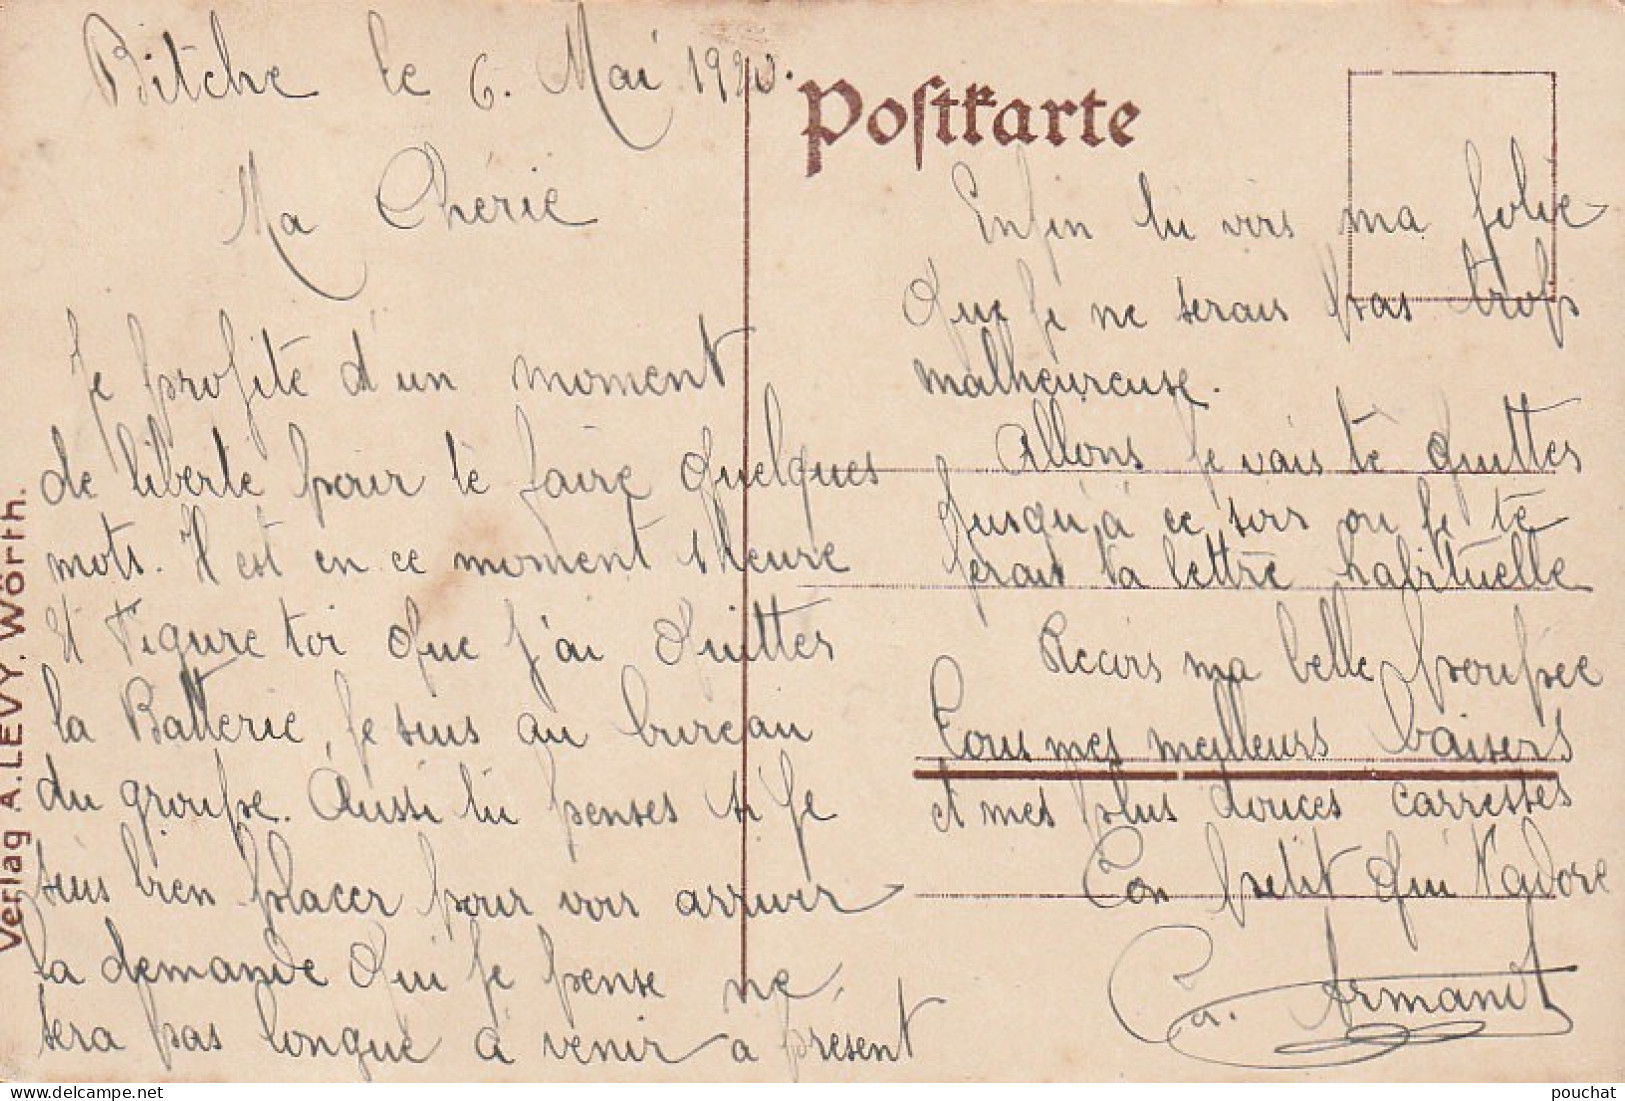 Bitche le 6. Mai 1920.
Ma Chérie
Je profite d'un moment
de liberté pour te faire quelques
mots. Il est en ce moment 1 heure
Et Figure toi que j'ai quitter
la Batterie, je suis au bureau
du groupe. Aussi tu penses si je
suis bien placer pour voir arriver
la demande qui je pense ne
sera pas longue à venir a présent
Postkarte
Enfin tu vois ma folie
que je ne serais pas trop
malheureuse.
Allons je vais te quitter
jusqu'à ce soir ou je te
ferais ta lettre habituelle
Recois ma belle poupée
Tous mes meilleurs baisers
et mes plus douces carresses
Ton petit qui t'adore
Armand
Verlag A. LEVY. Wörth.
pouchat